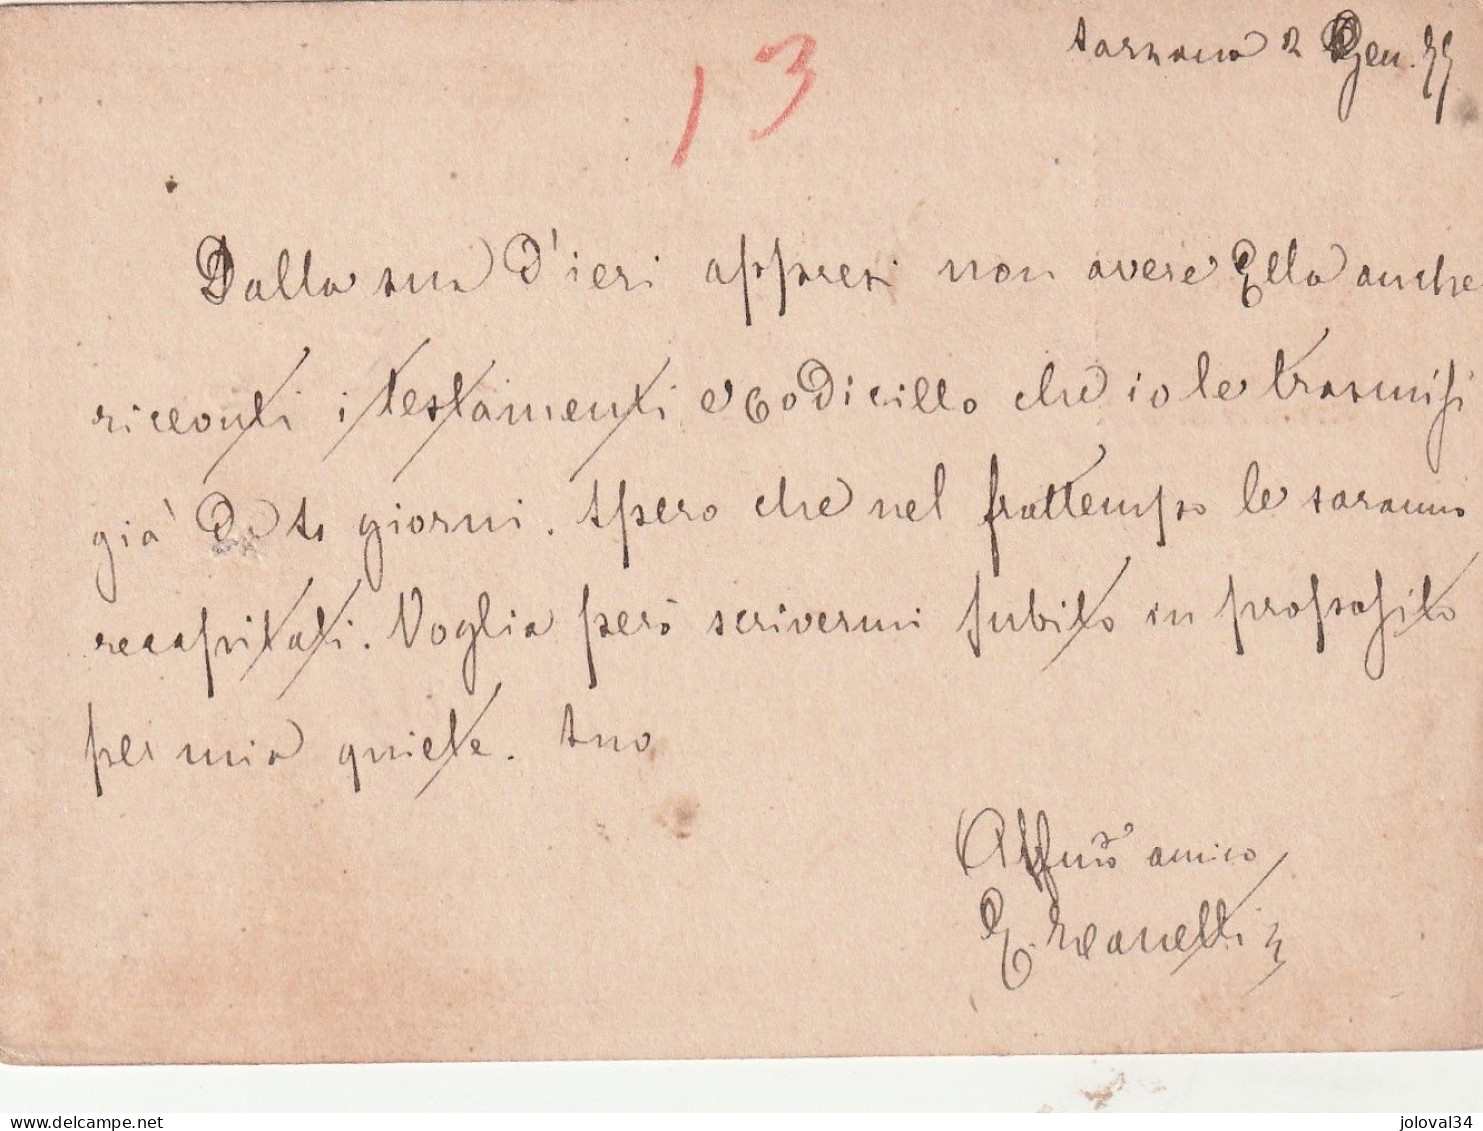 Sarzana 2 Gen. 77
13
Dalla sua d'ieri appresi non avere Ella anche
ricevuti i testamenti e codicillo che io le trasmisi
già da to giorni. Spero che nel frattempo le saranno
recapitati. Voglia però scrivermi subito in proposito
per mia quiete. Suo
Affmo amico
joloval34
www.delcampe.net